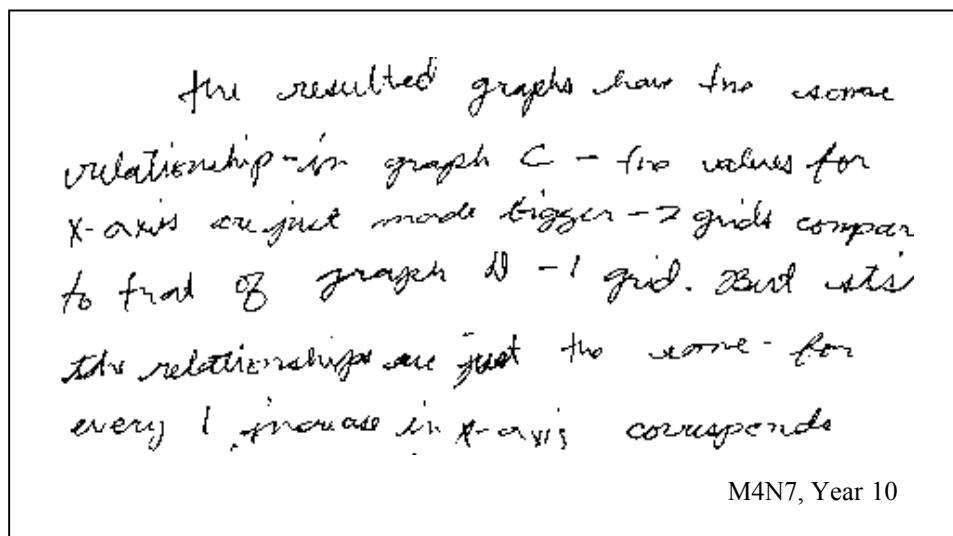 the resulted graphs have the same
relationship - in graph C - the values for
x-axis are just made bigger - 2 grids compar
to that of graph D - 1 grid. But
the relationships are just the same - for
every 1 increase in x-axis corresponds
M4N7, Year 10